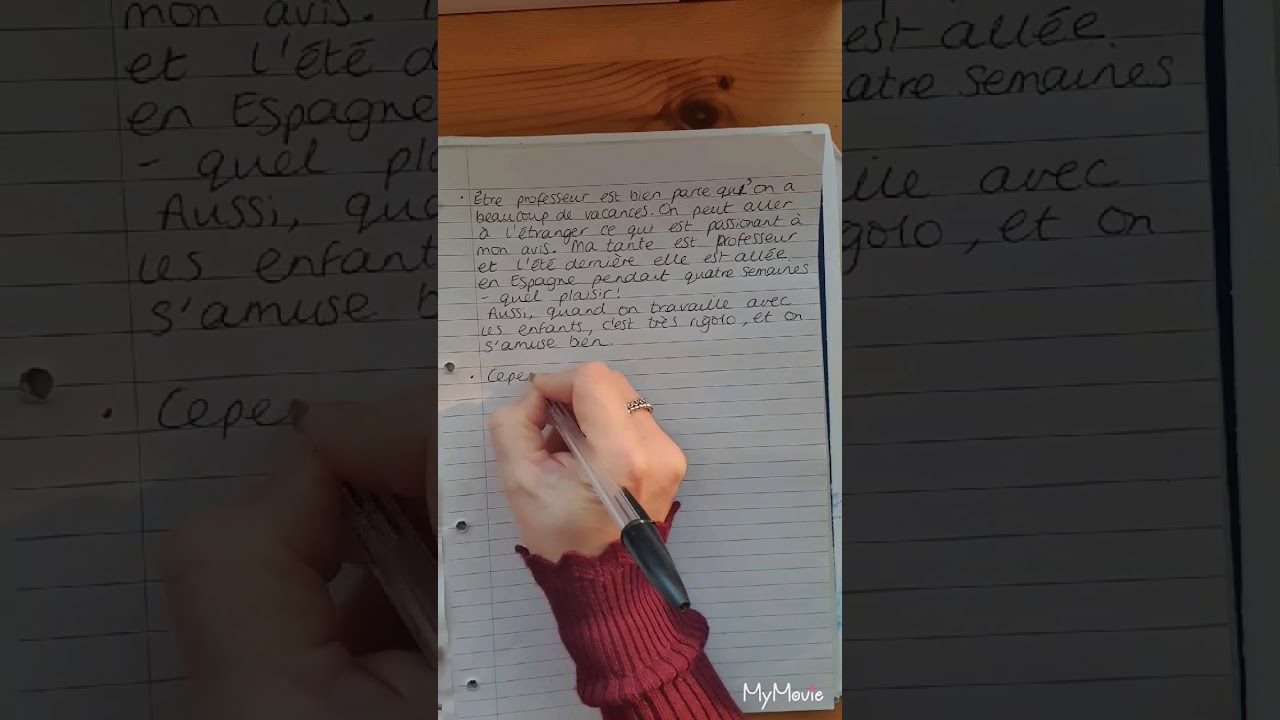 • Être professeur est bien parce qu'on a
beaucoup de vacances. On peut aller
à l'étranger ce qui est passionant à
mon avis. Ma tante est professeur
et l'été dernière elle est allée
en Espagne pendant quatre semaines
- quel plaisir!
Aussi, quand on travaille avec
les enfants, c'est très rigolo, et on
s'amuse bien.
• Cepe
MyMovie